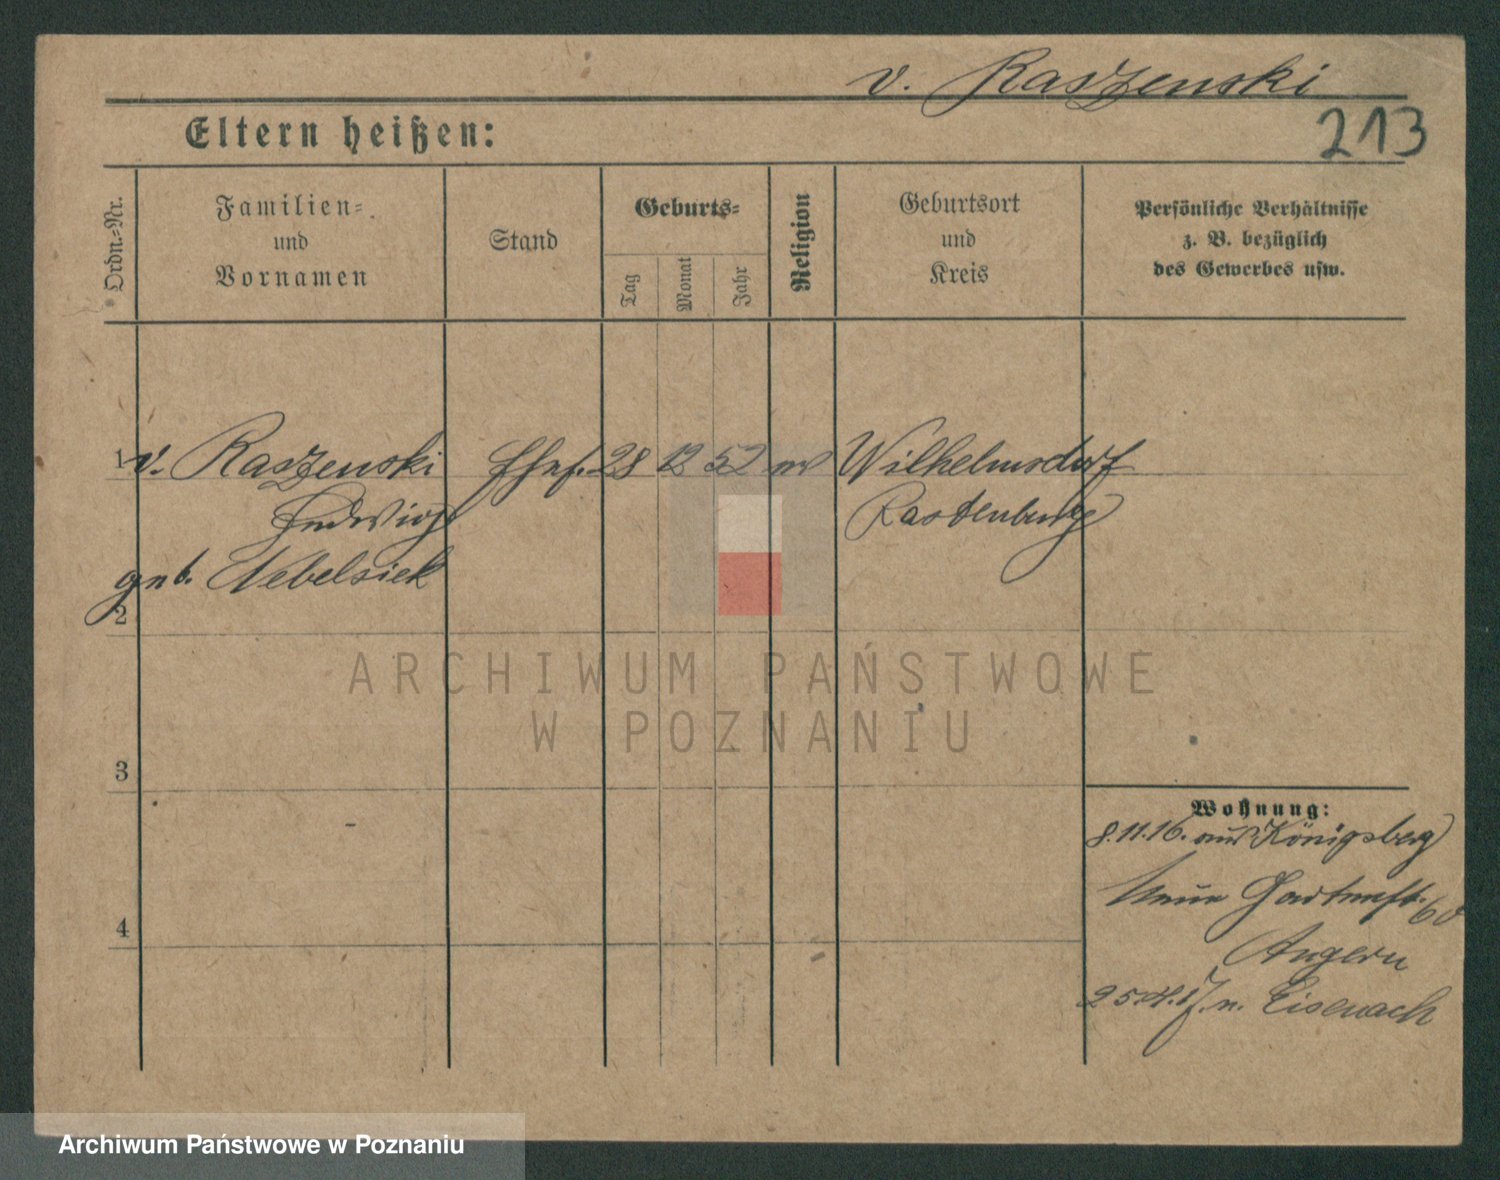 v. Raszenski
213
Eltern heißen:
Ordn.-Nr.
Familien-
und
Vornamen
Stand
Geburts-
Tag
Monat
Jahr
Religion
Geburtsort
und
Kreis
Persönliche Verhältnisse
z. B. bezüglich
des Gewerbes usw.
1 v. Raszenski Ehef. 28 12 52 ev Wilhelmsdorf
Hedwig Rastenburg
geb. Nebelsiek
2
ARCHIWUM PAŃSTWOWE
W POZNANIU
3
Wohnung:
8.11.16. aus Königsberg
Neue Gartenstr. 60
Angern
25. 17. n. Eisenach
4
Archiwum Państwowe w Poznaniu